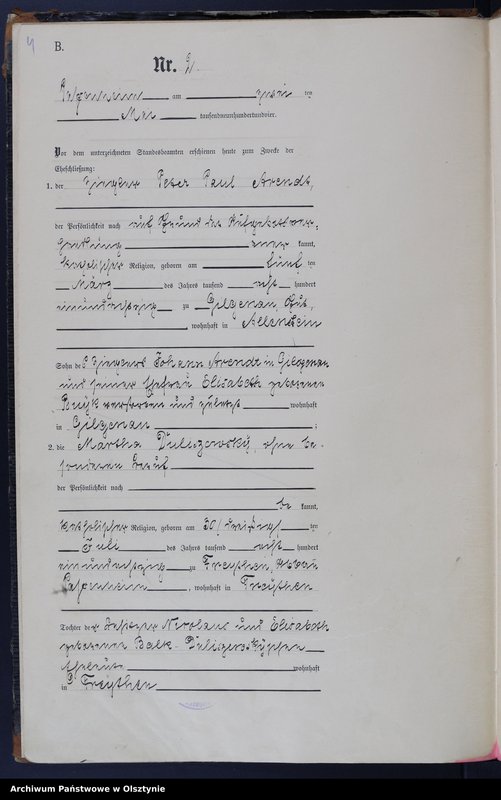 B.
Nr. 2
am ten
Mai tausendneunhundertundvier.
Vor dem unterzeichneten Standesbeamten erschienen heute zum Zwecke der
Eheschließung:
1. der Ziegler Peter Paul Arendt,
der Persönlichkeit nach auf Grund der
kannt,
katholischer Religion, geboren am fünf ten
März des Jahrs tausend acht hundert
einundachtzig zu Gilgenau, Gut,
, wohnhaft in Allenstein
Sohn des Zieglers Johann Arendt in Gilgenau
und seiner Ehefrau Elisabeth geborenen
verstorben und zuletzt wohnhaft
in Gilgenau ;
2. die Martha Duliszewsky, ohne be-
sonderen Beruf
der Persönlichkeit nach
be kannt,
katholischer Religion, geboren am 30/dreißigs ten
Juli des Jahrs tausend acht hundert
einundachtzig zu
, wohnhaft in
Tochter der Besitzer Nicolaus und Elisabeth
geborene Balk-
Eheleute wohnhaft
in
Archiwum Państwowe w Olsztynie